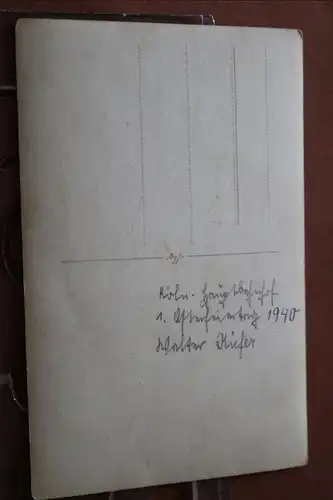 Köln-Hauptbahnhof
1. Osterfeiertag 1940
Walter